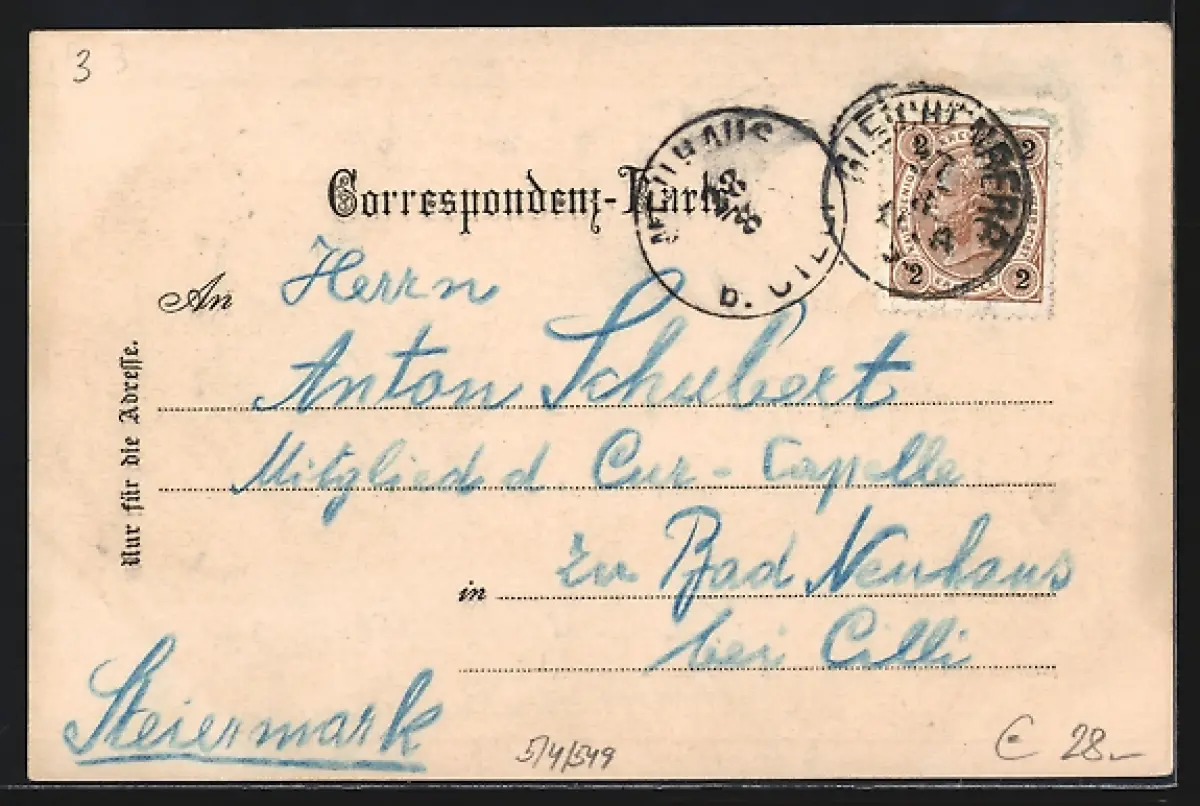 3
Correspondenz-Karte
NEUHAUS
28
8
b. CILLI
GLEICHENBERG
2 2
2 2
An Herrn
Anton Schubert
Mitglied d. Cur-Capelle
in Zu Bad Neuhaus
bei Cilli
Steiermark
Nur für die Adresse.
5/4/549
€ 28.-